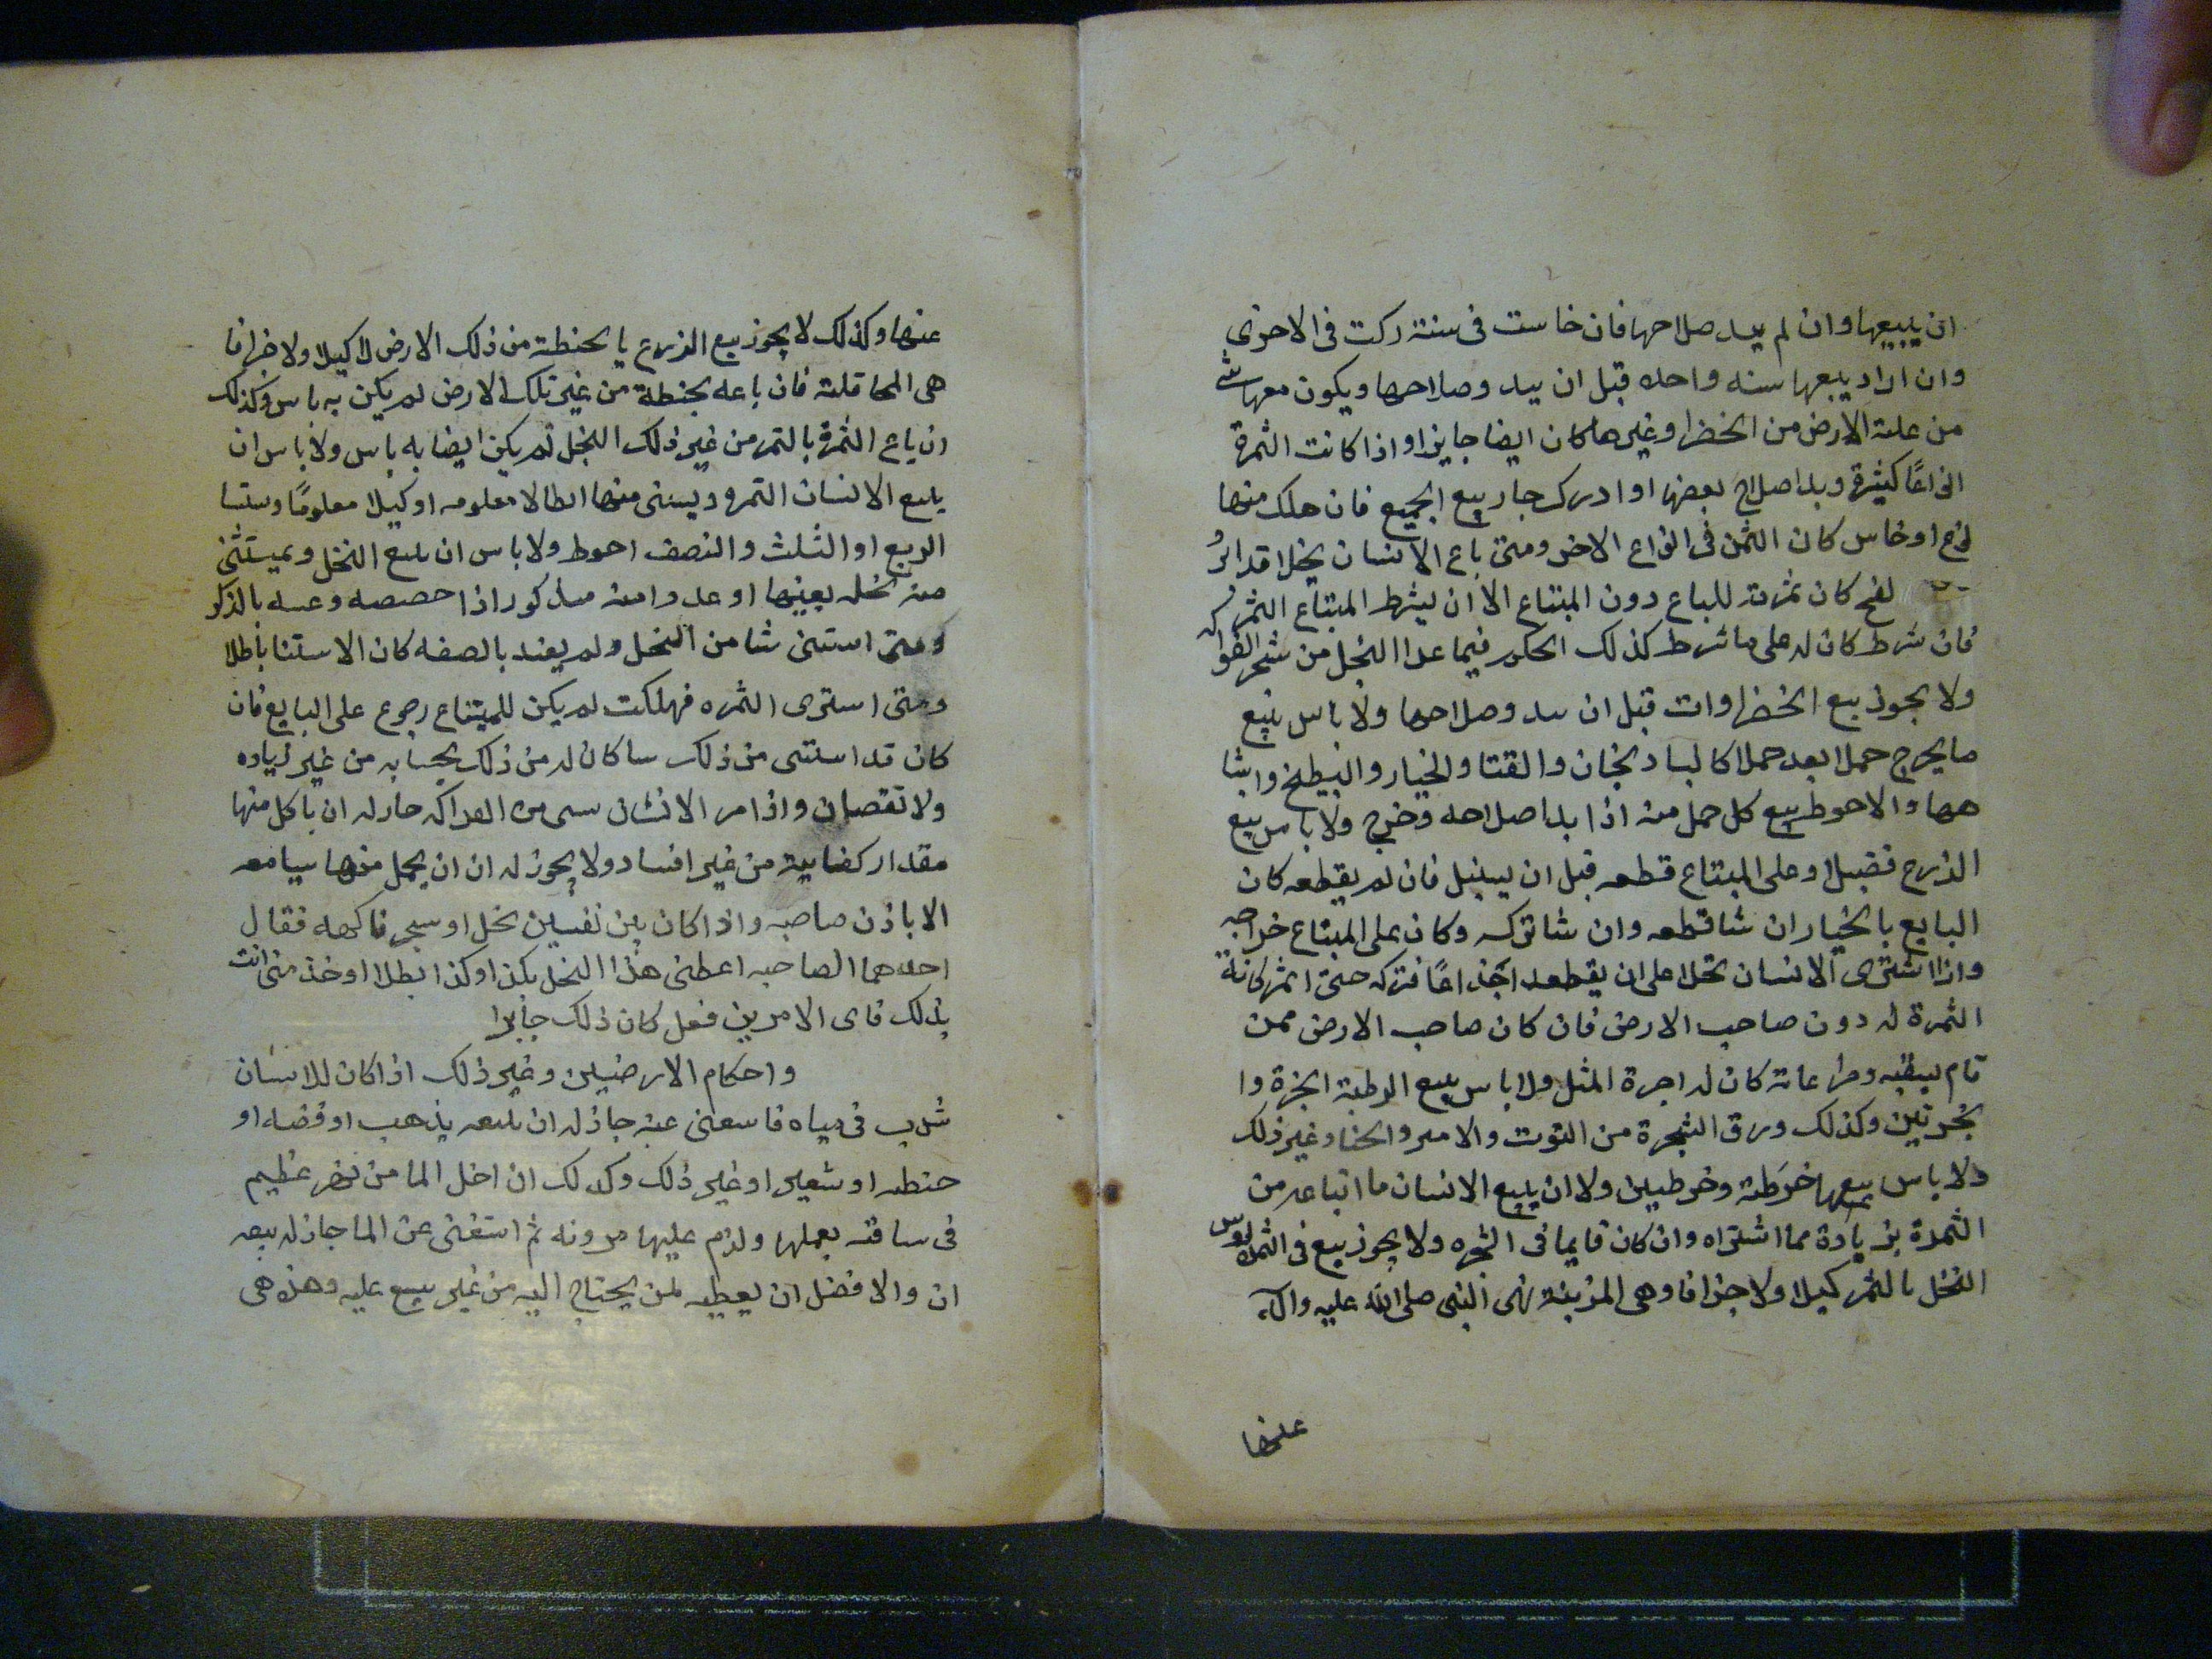 ان يبيعها وان لم يبد صلاحها فان خاست فى سنة زكت فى الاخرى
وان اراد بيعها سنه واحده قبل ان يبد وصلاحها ويكون معها شى
من غلة الارض من الخضر وغيرها كان ايضا جايزا واذا كانت الثمرة
انواعًا كثيرة وبدا صلاح بعضها او ادرك جاز بيع الجميع فان هلك منها
نوع او خاس كان الثمن فى انواع الاخر ومتى باع الانسان نخلا قد ابرُ
لقح كان ثمرته للبايع دون المبتاع الا ان يشرط المبتاع الثمر
فان شرط كان له على ما شرط كذلك الحكم فيما عدا النخل من شجر الفواكه
ولا يجوز بيع الخضراوات قبل ان يبد وصلاحها ولا باس ببيع
ما يخرج حملا بعد حملا كالباد نجان والقثا والخيار والبطيخ واشبا
هها والاحوط بيع كل حمل منه اذا بدا صلاحه وخرج ولا باس ببيع
الزرع قصيلا وعلى المبتاع قطعه قبل ان يسنبل فان لم يقطعه كان
البايع بالخيار ان شا قطعه وان شا تركه وكان على المبتاع خراجه
واذا اشترى الانسان نخلا على ان يقطعه اجذاعًا فتركه حتى اثمر كانت
الثمرة له دون صاحب الارض فان كان صاحب الارض ممن
قام بسقيه ومراعاته كان له اجرة المثل ولا باس ببيع الرطبة الجزة وا
لجزتين وكذلك ورق الشجرة من التوت والاس والحنا وغير ذلك
ولا باس ببيعها خرطة وخرطتين ولا ان يبيع الانسان ما ابتاعه من
الثمرة بزيادة مما اشتراه وان كان قايما فى الشجره ولا يجوز بيع فى الثمرة روس
النخل بالثمر كيلا ولا جزافا وهى المزبنة نهى النبى صلى الله عليه واله
عنها
عنها وكذلك لا يجوز بيع الزرع بالحنطة من ذلك الارض لا كيلا ولا جزافا
هى المحاقلة فان باعه بحنطة من غير تلك الارض لم يكن به باس وكذلك
ان باع الثمرة بالتمر من غير ذلك النخل لم يكن ايضا به باس ولا باس ان
يبيع الانسان الثمره ويستثنى منها ارطالا معلومه او كيلا معلومًا وستثنا
الربع او الثلث والنصف احوط ولا باس ان يبيع النخل ويستثنى
منه نخله بعينها او عددا منه مذكورا اذا خصصه وعينه بالذكر
ومتى استثنى شيا من النخل ولم يقيد بالصفه كان الاستثنا باطلا
ومتى اشترى الثمره فهلكت لم يكن للمبتاع رجوع على البايع فان
كان قد استثنى من ذلك شيا كان له من ذلك بحسابه من غير زياده
ولا نقصان واذا مر الانسان بشى من الفواكه جاز له ان ياكل منها
مقدار كفايته من غير افساد ولا يجوز له ان ان يحمل منها شيا معه
الا باذن صاحبه واذا كان بين نفسين نخل او شجر فاكهه فقال
احدهما لصاحبه اعطنى هذا النخل بكذا وكذا رطلا او خذ منى انت
بذلك فاى الامرين فعل كان ذلك جايزا
واحكام الارضيين وغير ذلك اذا كان للانسان
شرب فى مياه فاستغنى عنه جاز له ان يبيعه بذهب او فضه او
حنطه او شعير او غير ذلك وكذلك ان اخذ الما من نهر عظيم
فى ساقيه يعملها ولزم عليها مونه ثم استغنى عن الما جاز له بيعه
ان والافضل ان يعطيه لمن يحتاج اليه من غير بيع عليه وهذه هى